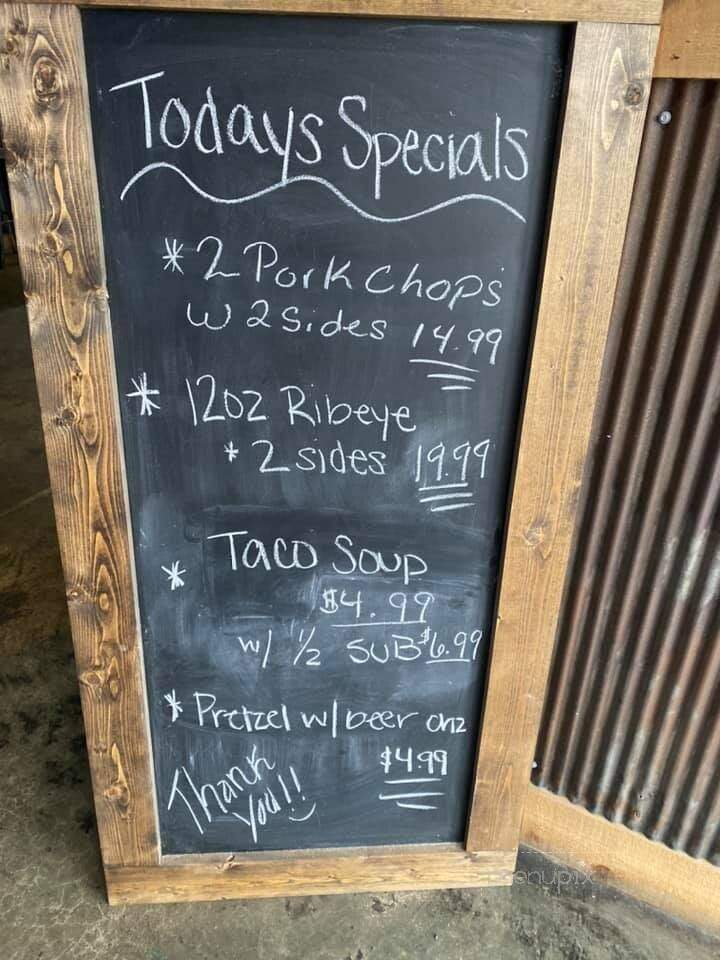 Todays Specials
* 2 Pork Chops
w 2 Sides 14.99
* 12oz Ribeye
* 2 sides 19.99
* Taco Soup
$4.99
w/ 1/2 SUB $6.99
* Pretzel w/ beer chz
$4.99
Thank
You!!